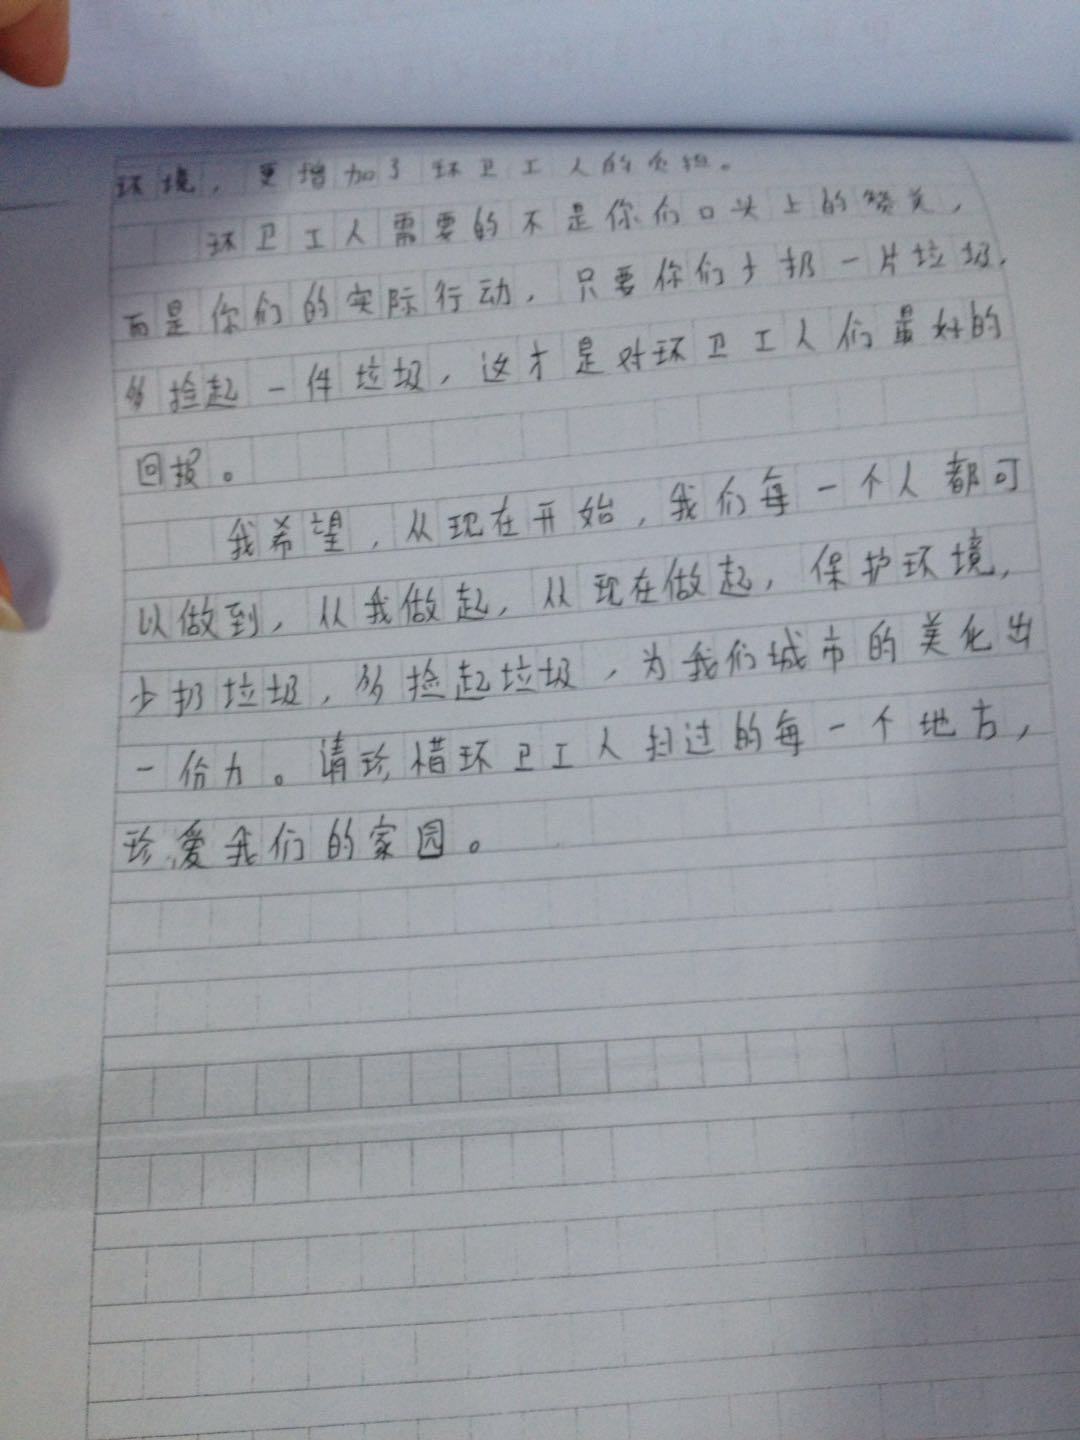 环境，更增加了环卫工人的负担。
环卫工人需要的不是你们口头上的赞美，
而是你们的实际行动，只要你们少扔一片垃圾，
多捡起一件垃圾，这才是对环卫工人们最好的
回报。
我希望，从现在开始，我们每一个人都可
以做到，从我做起，从现在做起，保护环境，
少扔垃圾，多捡起垃圾，为我们城市的美化出
一份力。请珍惜环卫工人扫过的每一个地方，
珍爱我们的家园。